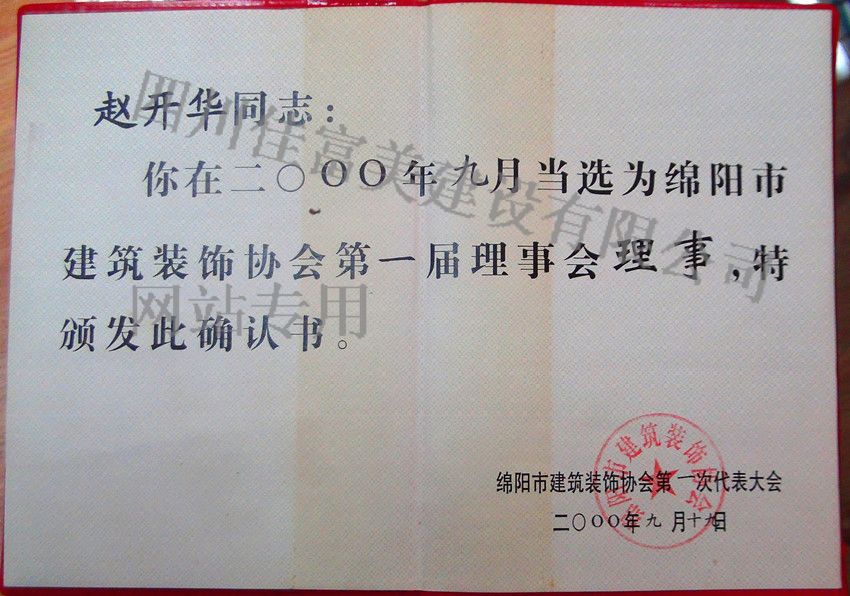 赵开华同志：
你在二〇〇〇年九月当选为绵阳市
建筑装饰协会第一届理事会理事，特
颁发此确认书。
绵阳市建筑装饰协会第一次代表大会
二〇〇〇年九月十九日
绵阳市建筑装饰协会
四川佳富美建设有限公司
网站专用